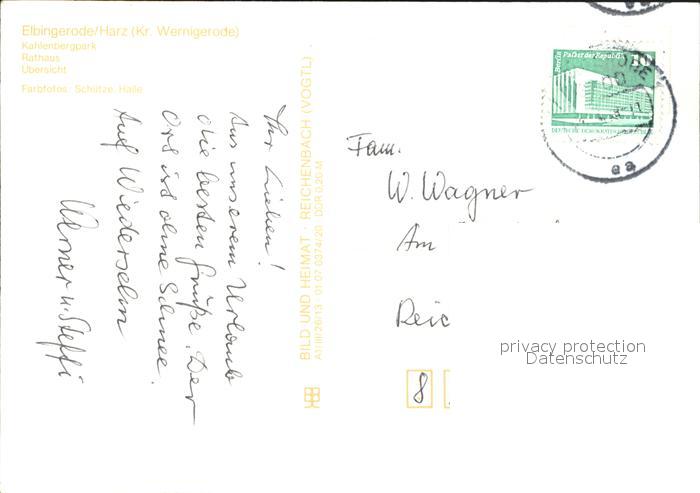 Elbingerode/Harz (Kr. Wernigerode)
Kahlenbergpark
Rathaus
Übersicht
Farbfotos: Schütze, Halle
Ihr Lieben!
Aus unserem Urlaub
die besten Grüße. Der
Ort ist ohne Schnee.
Auf Wiedersehn
Werner u. Steffi
BILD UND HEIMAT · REICHENBACH (VOGTL)
A1/III/26/13 · 01 07 0374/20 DDR 0,20 M
Berlin Palast der Republik
10
DEUTSCHE DEMOKRATISCHE
aa
Fam.
W. Wagner
Am
Reic
8
privacy protection
Datenschutz